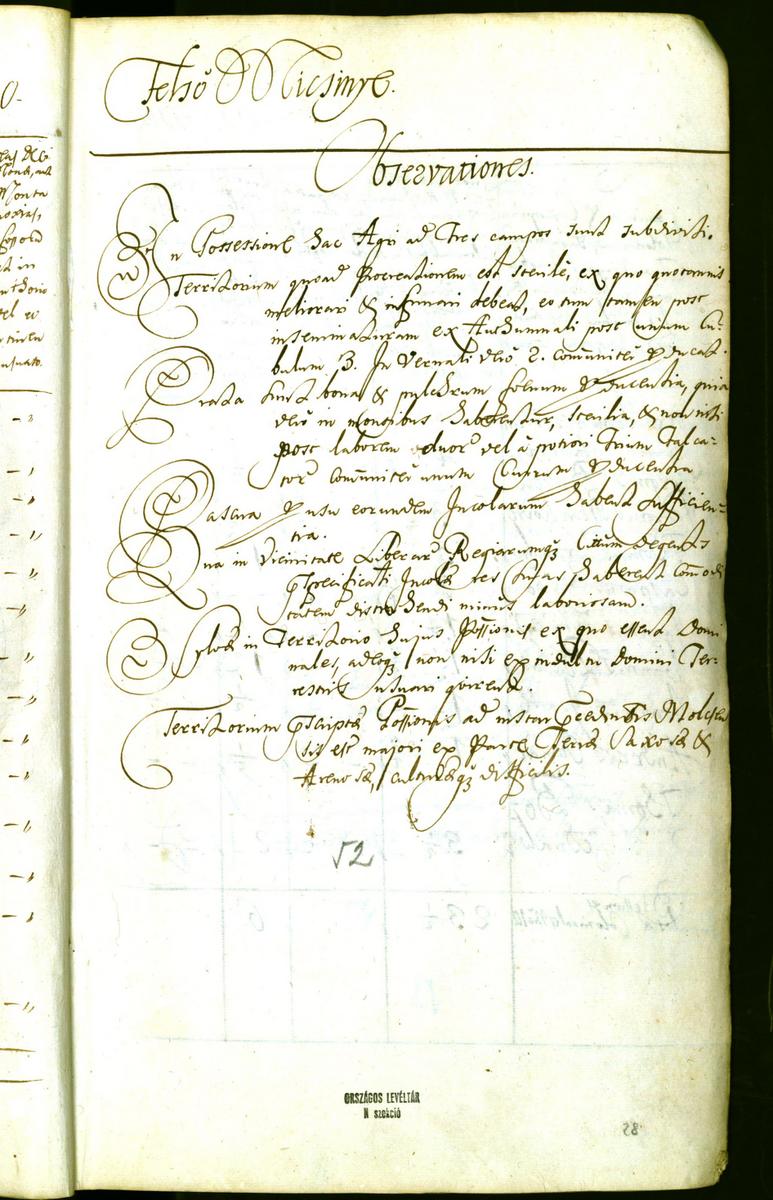 Felső Micsinye.
Observationes.
In Possessione hac Agri ad Tres campos sunt subdivisi.
Territorium quoad Procreationem est sterile, ex quo quotannis
meliorari & infimari debeat, eo cum tamen post
inseminaturam ex Authumnali post unum Cu-
bulum 3. In Vernali vero 2. Communiter educat.
Prata sunt bona & pulchrum foenum Producentia, quia
vero in montibus habentur, sterilia, & non nisi
post laborem duor vel a potiori trium Falca-
tor Communiter unum Currum Producentia
Pascua Pro usu eorundem Incolarum habent sufficien-
tia.
Qua in Vicinitate Liberar Regiarumq Cittum degentes
Specificati Incolae res suas haberent Comodi
tatem distrahendi minus laboriosam.
Sylvae in Territorio hujus Possionis ex quo essent Domi
nales, adeoq non nisi ex indultu Domini Ter-
restris usuari
Territorium Possionis ad instar
sis est majori ex Parte Terrae Saxosae &
Arenosae, culturaeq difficilis.
52
ORSZÁGOS LEVÉLTÁR
N szekció
28